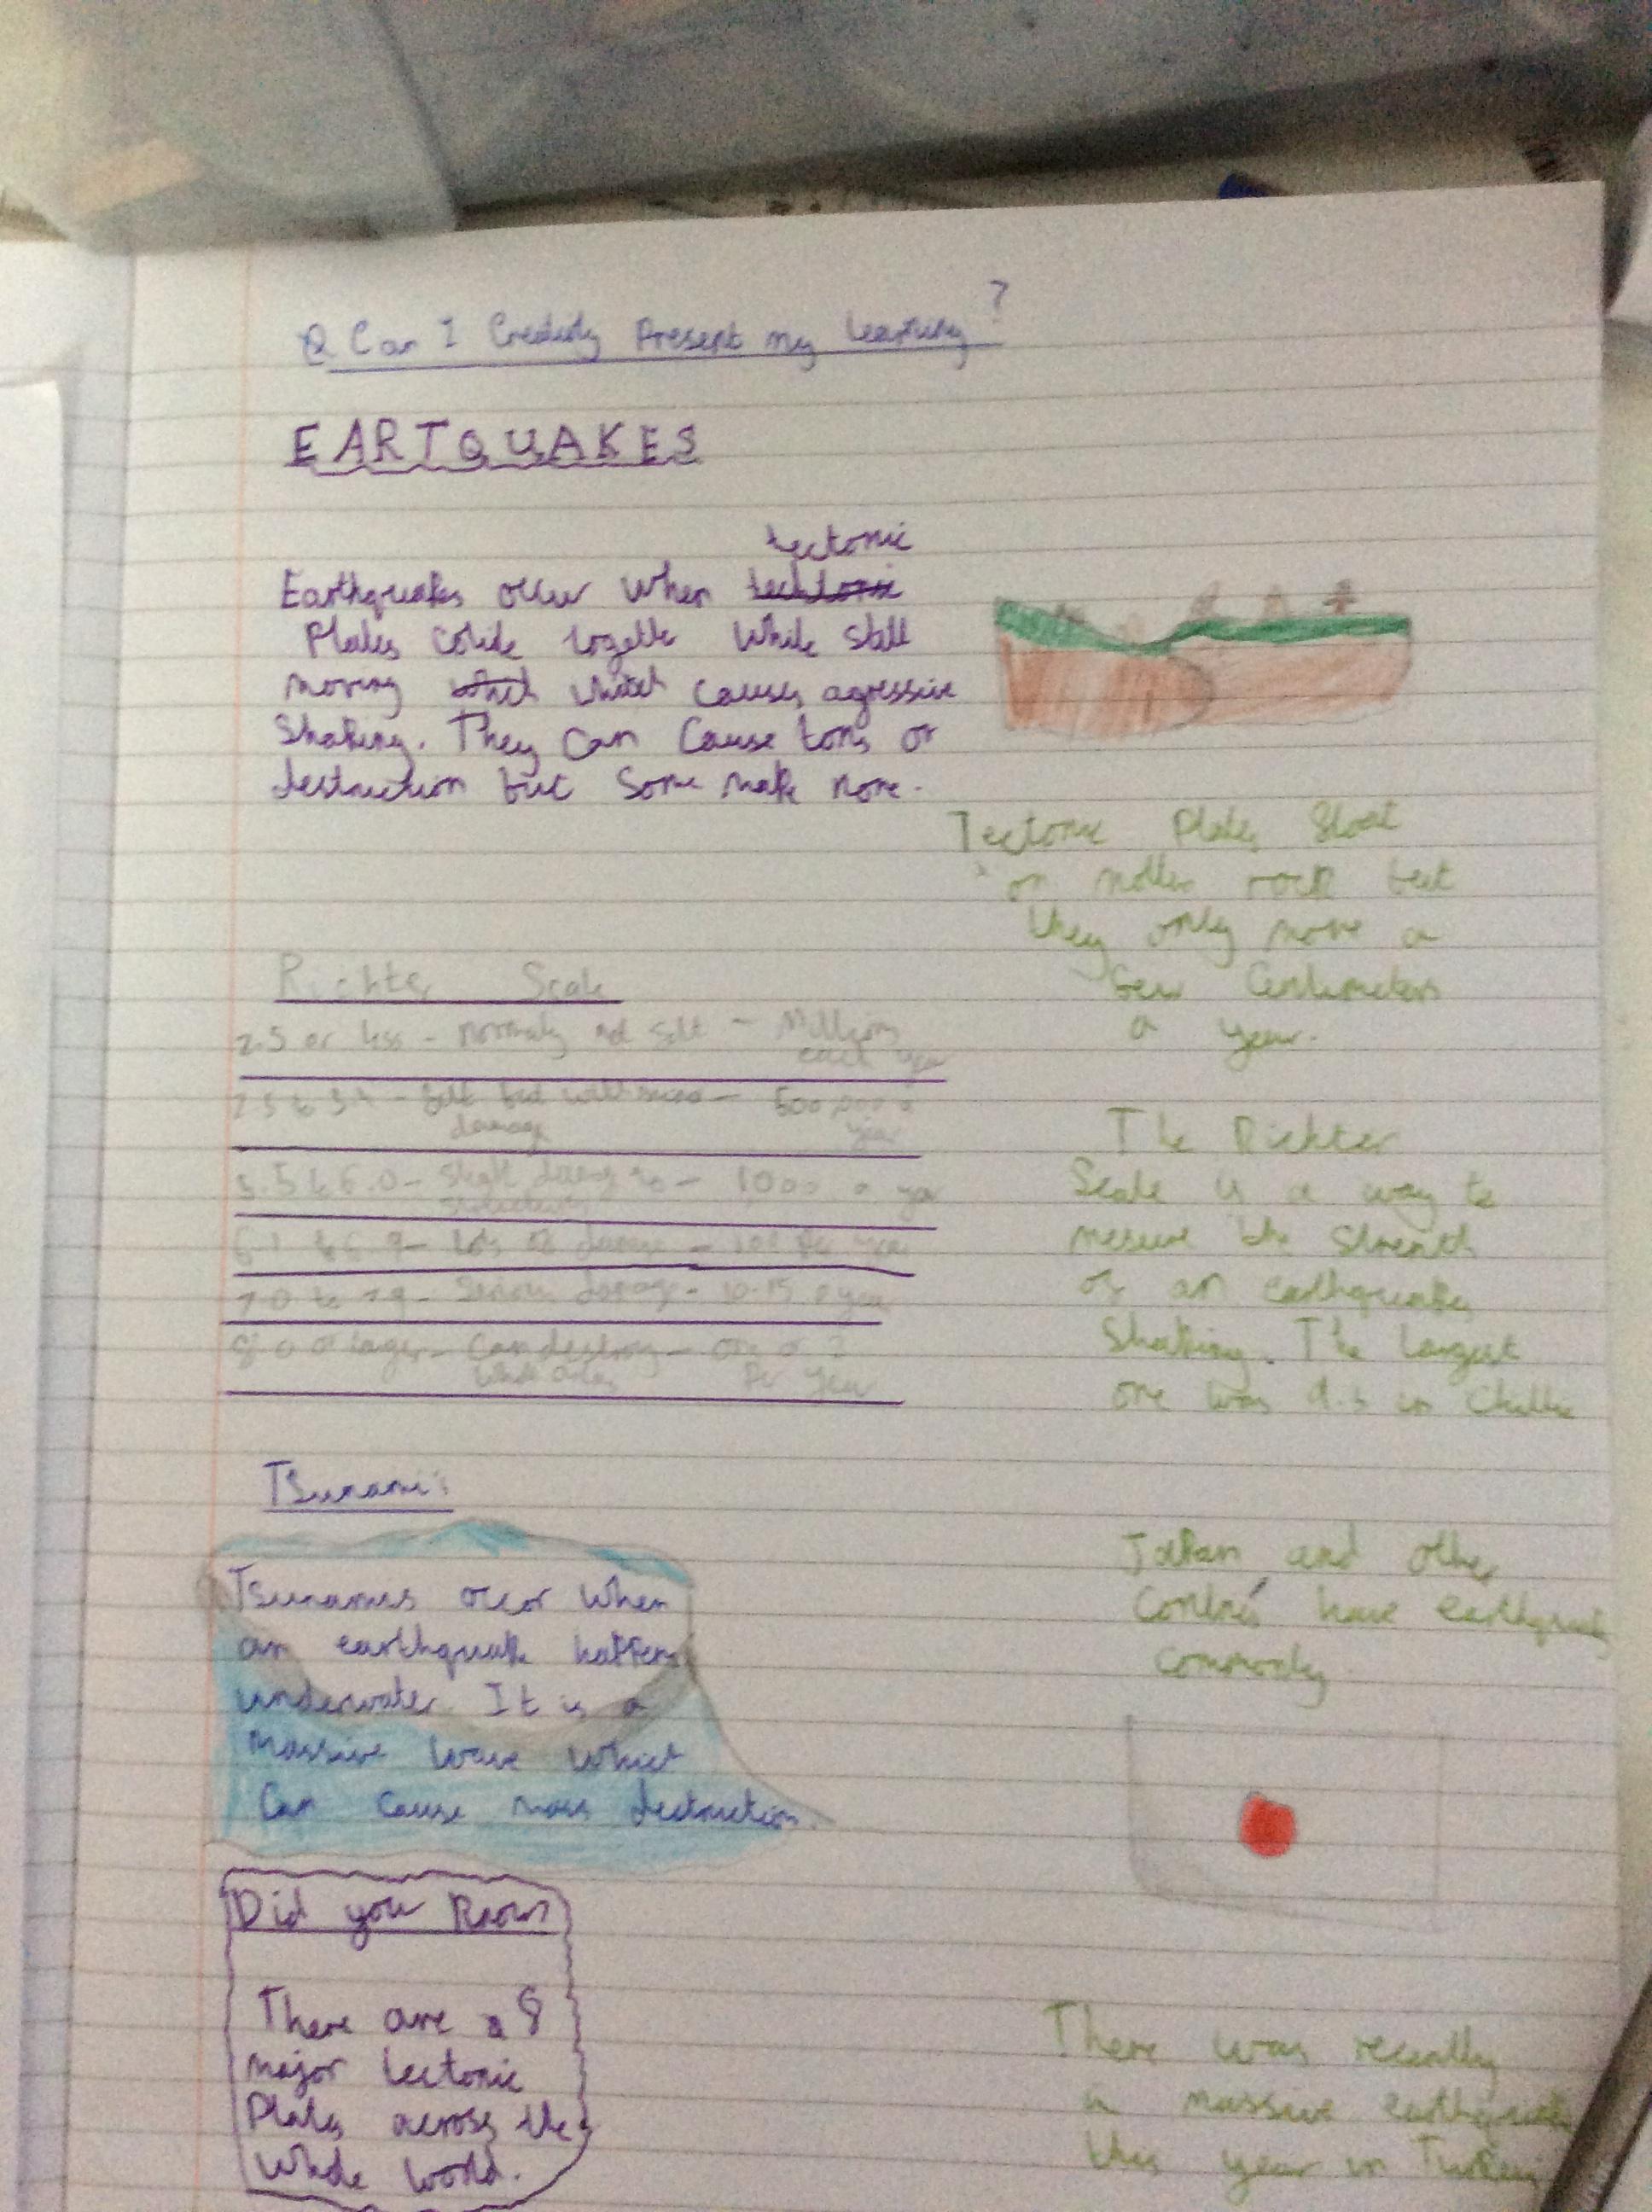 Q Can I Creativly Present my learning?
EARTQUAKES
tectonic
Earthquakes occur when techtonic
Plates colide togethe while still
moving which which causes agressive
Shaking. They can cause tons of
destruction but some make none.
Tectonic Plates float
on molten rock but
they only move a
few Centimeters
a year.
Richter Scale
2.5 or less - normaly not felt - Millions
each year
2.5 to 5.4 - felt but damage - 500,000 a
year
5.5 to 6.0 - slight damage to - 1000 a year
structures
6.1 to 6.9 - lots of damage - 100 per year
7.0 to 7.9 - Serious damage - 10-15 a year
8.0 or larger - Can destroy - one or 2
whole cities per year
The Richter
Scale is a way to
mesure the strenth
of an earthquakes
Shaking. The largest
one was 9.5 in
Tsunami's
Tsunamis occor when
an earthquake happens
underwater. It is a
massive wave which
can cause mass destruction.
Japan and other
have earthquakes
commonly
Did you know
There are 8
major tectonic
Plates across the
whole world.
There was recently
a massive earthquake
this year in Turkey